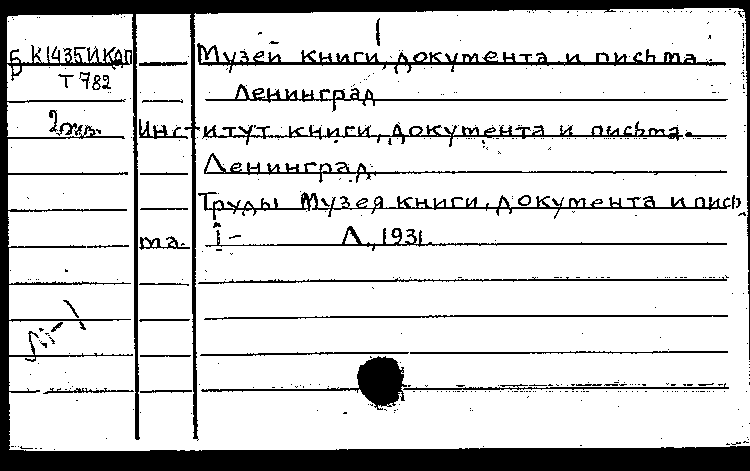 Б К1435ИКДП Музей книги, документа и письма
Т 782 Ленинград
2 экз. Институт книги, документа и письма.
Ленинград.
Труды Музея книги, документа и пись
ма. I- Л., 1931.